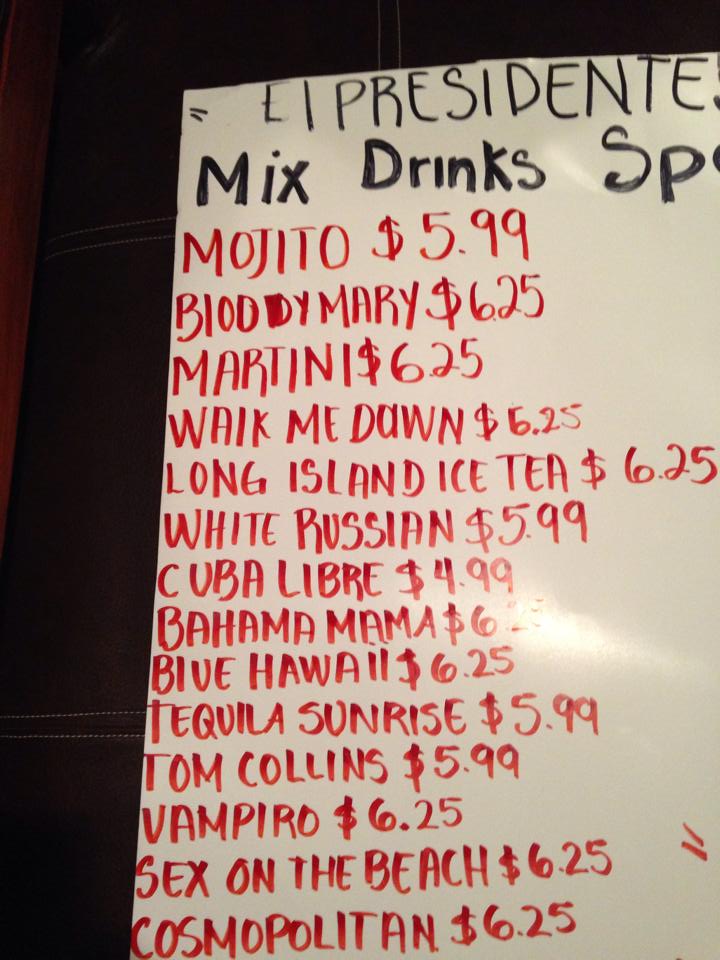 " El PRESIDENTE
Mix Drinks Sp
MOJITO $5.99
BlOODY MARY $6.25
MARTINI $6.25
WAlK ME DOWN $6.25
LONG ISLAND ICE TEA $6.25
WHITE RUSSIAN $5.99
CUBA LIBRE $4.99
BAHAMA MAMA $6.25
BlUE HAWAII $6.25
TEQUILA SUNRISE $5.99
TOM COLLINS $5.99
VAMPIRO $6.25
SEX ON THE BEACH $6.25
COSMOPOLITAN $6.25